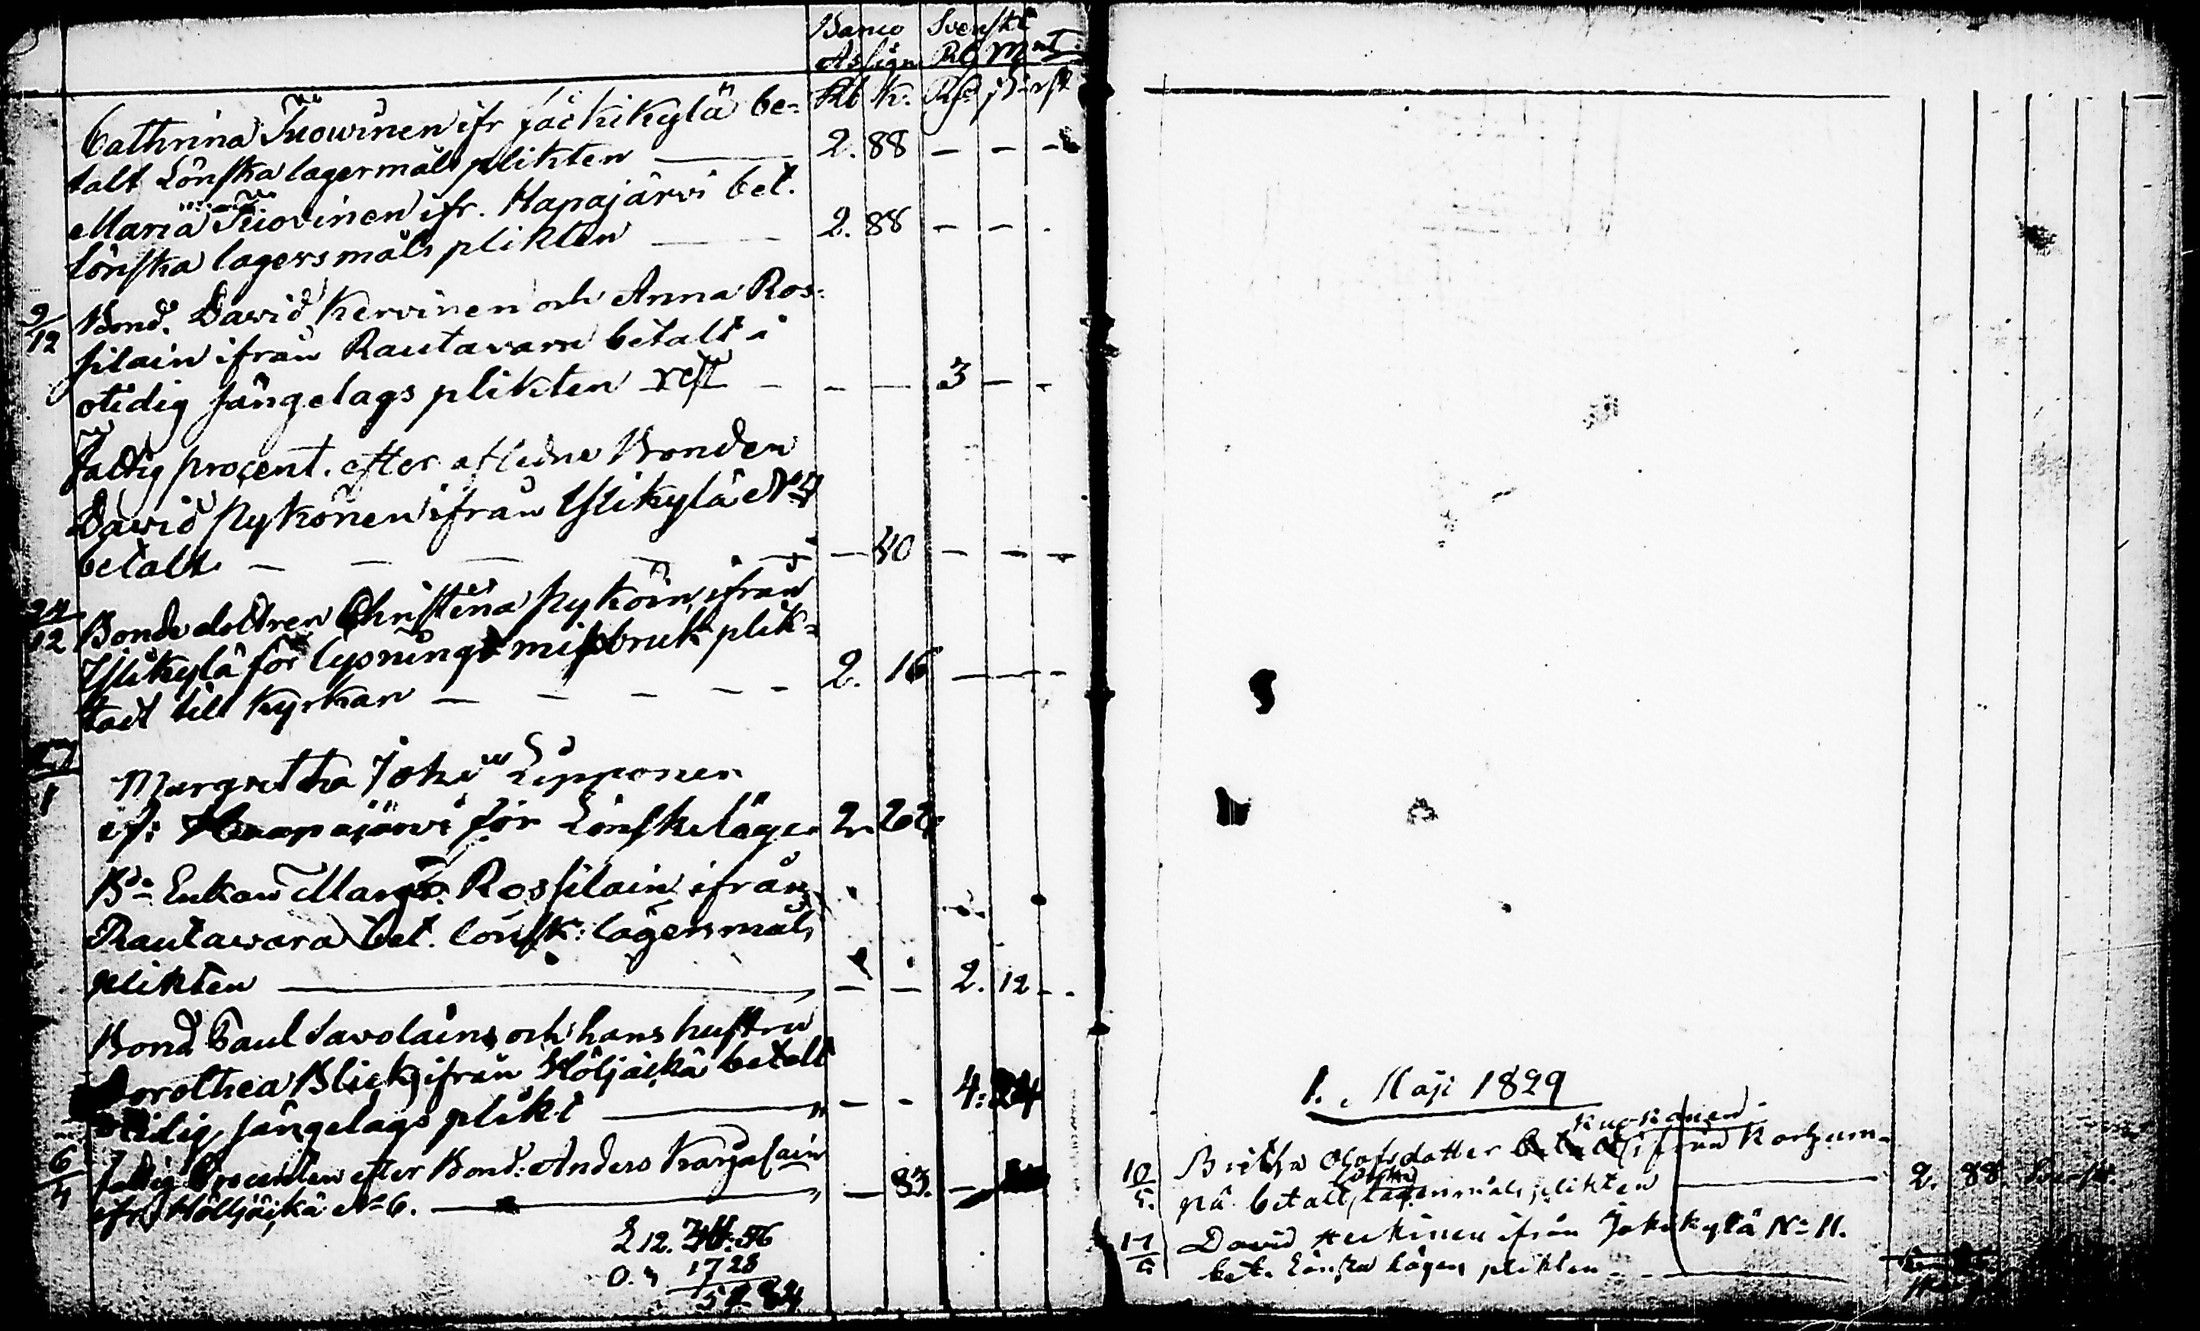 Banco Svenskt
Assign. RG Mnt
Rb K. Rd ß rst
Cathrina Tuowinen ifr Jäckikylä be-
talt Lönska lagermåls plikten — 2. 88 - - -
Maria Tuovinen ifr. Hapajärvi bet.
Lönska lagersmåls plikten — 2. 88 - - -
9/12 Bond. David Kervinen och Anna Ros-
silain ifrån Rautavara betalt i
otidig sängelags plikten rest - - - 3 - -
Fattig procent. efter aflidne Bonden
David Rykönen ifrån
betalt - - - - 40 - - -
24/12 Bonde dottren Christina Ryköin, ifrån
för lysnings missbruk plik-
tadt till Kyrkan - - - - 2. 16 - - -
27/1 Margretha Lipponen
if: Haapajärvi för Lönskeläger 2. 26
Bd Enkan Margr. Rossilain ifrån
Rautawara bet. lönsk: lägersmåls
plikten — - - 2. 12 -
Bond Paul Savolain och hans hustru
Dorothea Blick ifrån Höljäckä betalt
otidig sängelags plikt — - - 4: 24
6/4 Fattig Procenten efter Bond: Anders Karjalain
ifr. Höljäckä No 6. — - 83. -
1728
1. Maji 1829
Kuokanen
10/5. Britha Olofsdotter ifrån
Lönska
på betalt lägersmåls plikten — 2. 88.
17/5 David ifrån Jokikylä No 11.
bet. Lönska lägers plikten - -